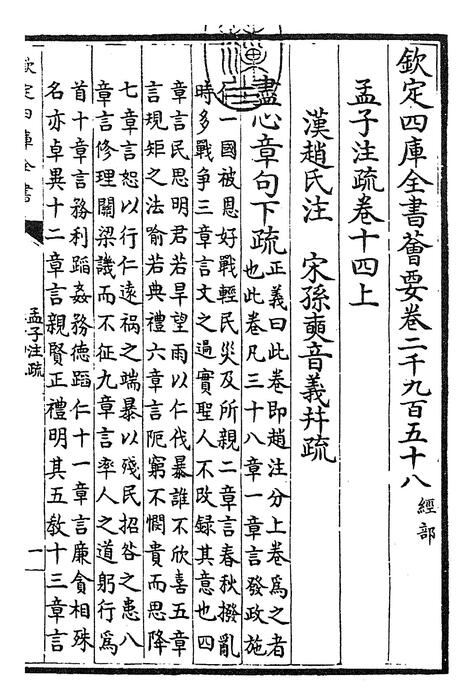 欽定四庫全書薈要卷二千九百五十八 經部
孟子注疏卷十四上
漢趙氏注 宋孫奭音義并疏
盡心章句下疏
正義曰此卷即趙注分上卷為之者
也此卷凡三十八章一章言發政施
仁一國被恩好戰輕民災及所親二章言春秋撥亂
時多戰爭三章言文之過實聖人不改録其意也四
章言民思明君若旱望雨以仁伐暴誰不欣喜五章
言規矩之法喻若典禮六章言阨窮不憫貴而思降
七章言恕以行仁遠禍之端暴以殘民招咎之患八
章言修理關梁譏而不征九章言率人之道躬行為
首十章言務利蹈姦務德蹈仁十一章言廉貪相殊
名亦卓異十二章言親賢正禮明其五教十三章言
欽定四庫全書
孟子注疏
一